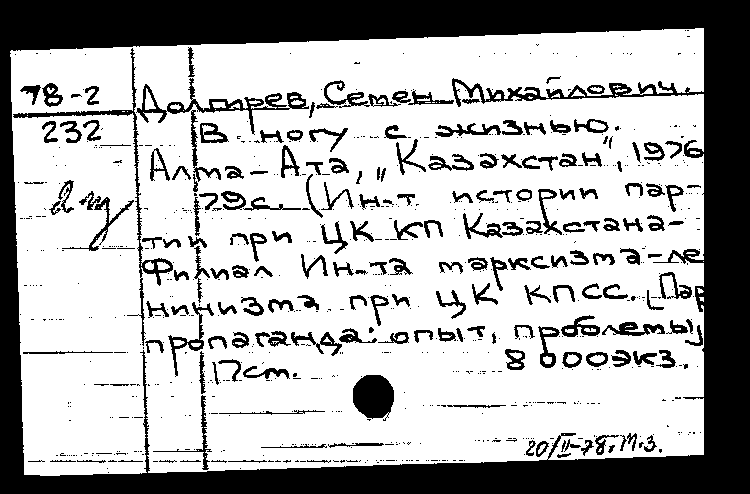 78-2
Долгирев, Семен Михайлович.
232
В ногу с жизнью.
Алма-Ата, "Казахстан", 1976
79с. (Ин-т истории пар-
тии при ЦК КП Казахстана-
Филиал Ин-та марксизма-ле
нинизма при ЦК КПСС. [Пар
пропаганда: опыт, проблемы]
17см. 8 000экз.
20/II-78. М.З.